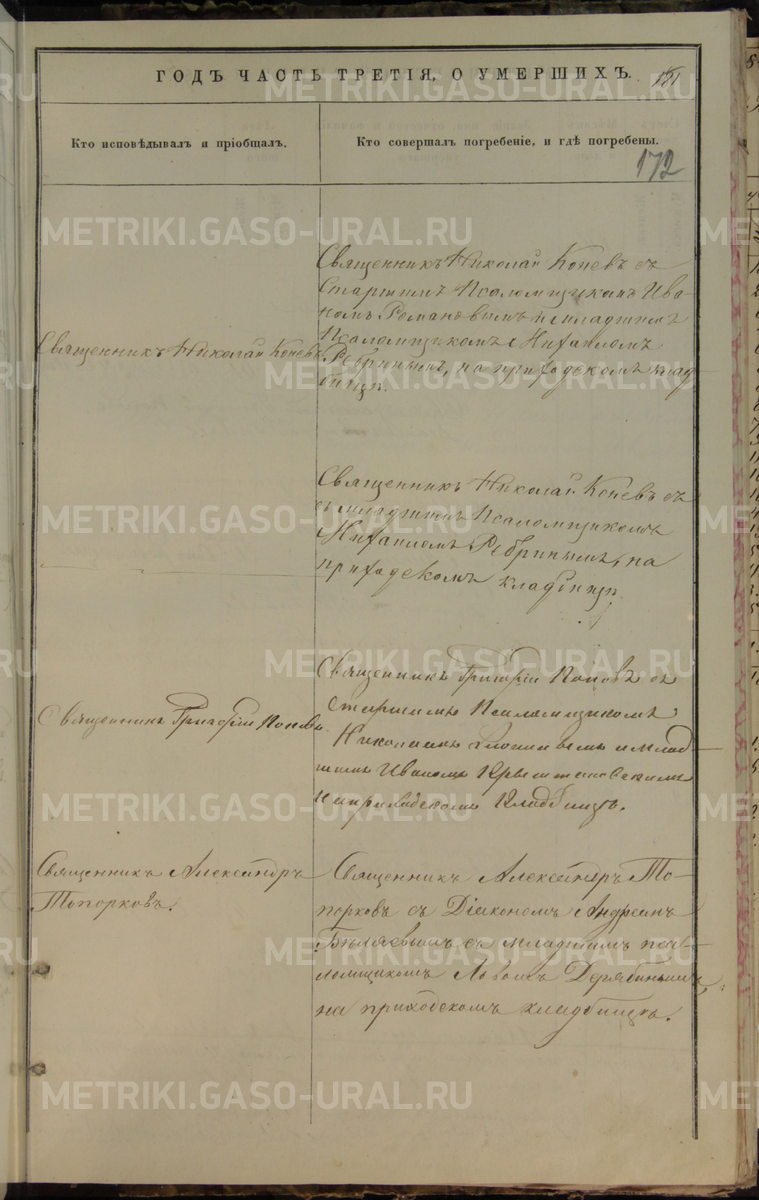 ГОДЪ ЧАСТЬ ТРЕТІЯ, О УМЕРШИХЪ.
172
Кто исповѣдывалъ и пріобщалъ.
Кто совершалъ погребеніе, и гдѣ погребены.
Священникъ Николай Коневъ
Священникъ Николай Коневъ съ
Старшимъ Псаломщикомъ Ива-
номъ Романовымъ и младшимъ
Псаломщикомъ Михаиломъ
Ребринымъ, на приходскомъ клад-
бищѣ.
Священникъ Николай Коневъ съ
съ младшимъ Псаломщикомъ
Михаиломъ Ребринымъ, на
приходскомъ кладбищѣ.
Священникъ Григорій Поповъ
Священникъ Григорій Поповъ съ
Старшимъ Псаломщикомъ
Николаемъ и млад-
шимъ Иваномъ
на приходскомъ Кладбищѣ.
Священникъ Александръ
Топорковъ.
Священникъ Александръ То-
порковъ съ Діакономъ Андреемъ
Бѣляевымъ съ младшимъ пса-
ломщикомъ Дерябинымъ,
на приходскомъ кладбищѣ.
METRIKI.GASO-URAL.RU